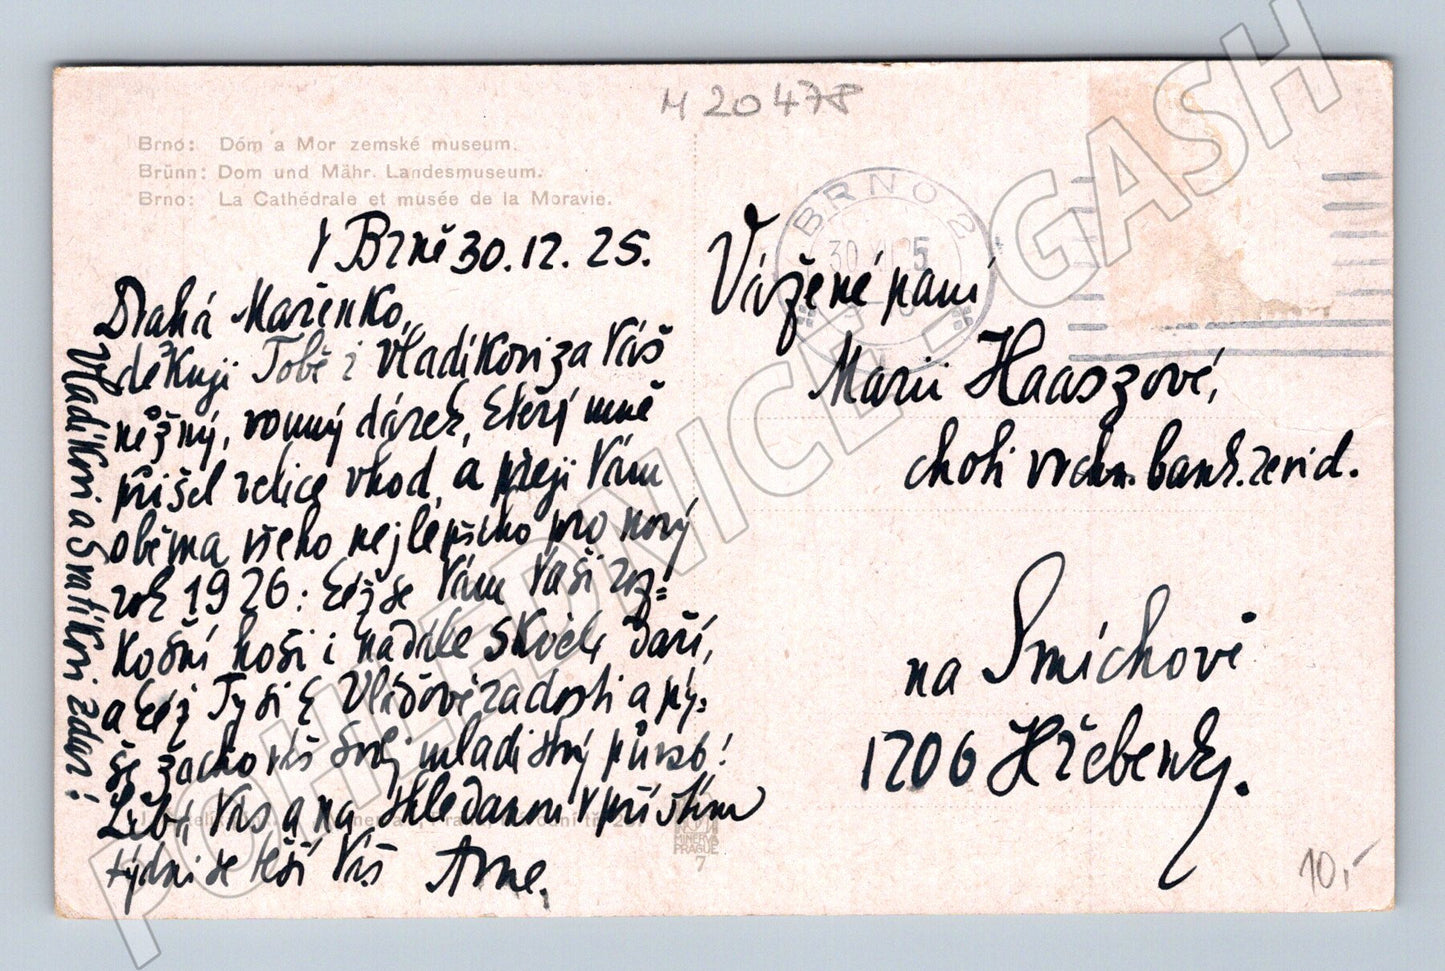 M 20478
Brno: Dóm a Mor zemské museum.
Brünn: Dom und Mähr. Landesmuseum.
Brno: La Cathédrale et musée de la Moravie.
BRNO 2
30 XII 25
V Brně 30.12.25.
Drahá Mařenko,
děkuji Tobě i Vladíkovi za Váš
něžný, vonný dárek, který mně
přišel velice vhod, a přeji Vám
oběma všeho nejlepšího pro nový
rok 1926: kéž se Vám Vaši roz=
košní hoši i nadále skvěle daří,
a kéž Ty si k Vláďově radosti a pý=
še zachováš svůj mladistvý půvab!
Líbá Vás a na shledanou v příštím
týdnu se těší Váš Arne.
Vladíkovi a Svatíkovi zdar!
Vážené paní
Marii Haaszové,
choti vrchn. bank. zeríd.
na Smíchově
1206 Hřebenky.
MINERVA
PRAGUE
7
10,-
POHLEDNICE_GASH